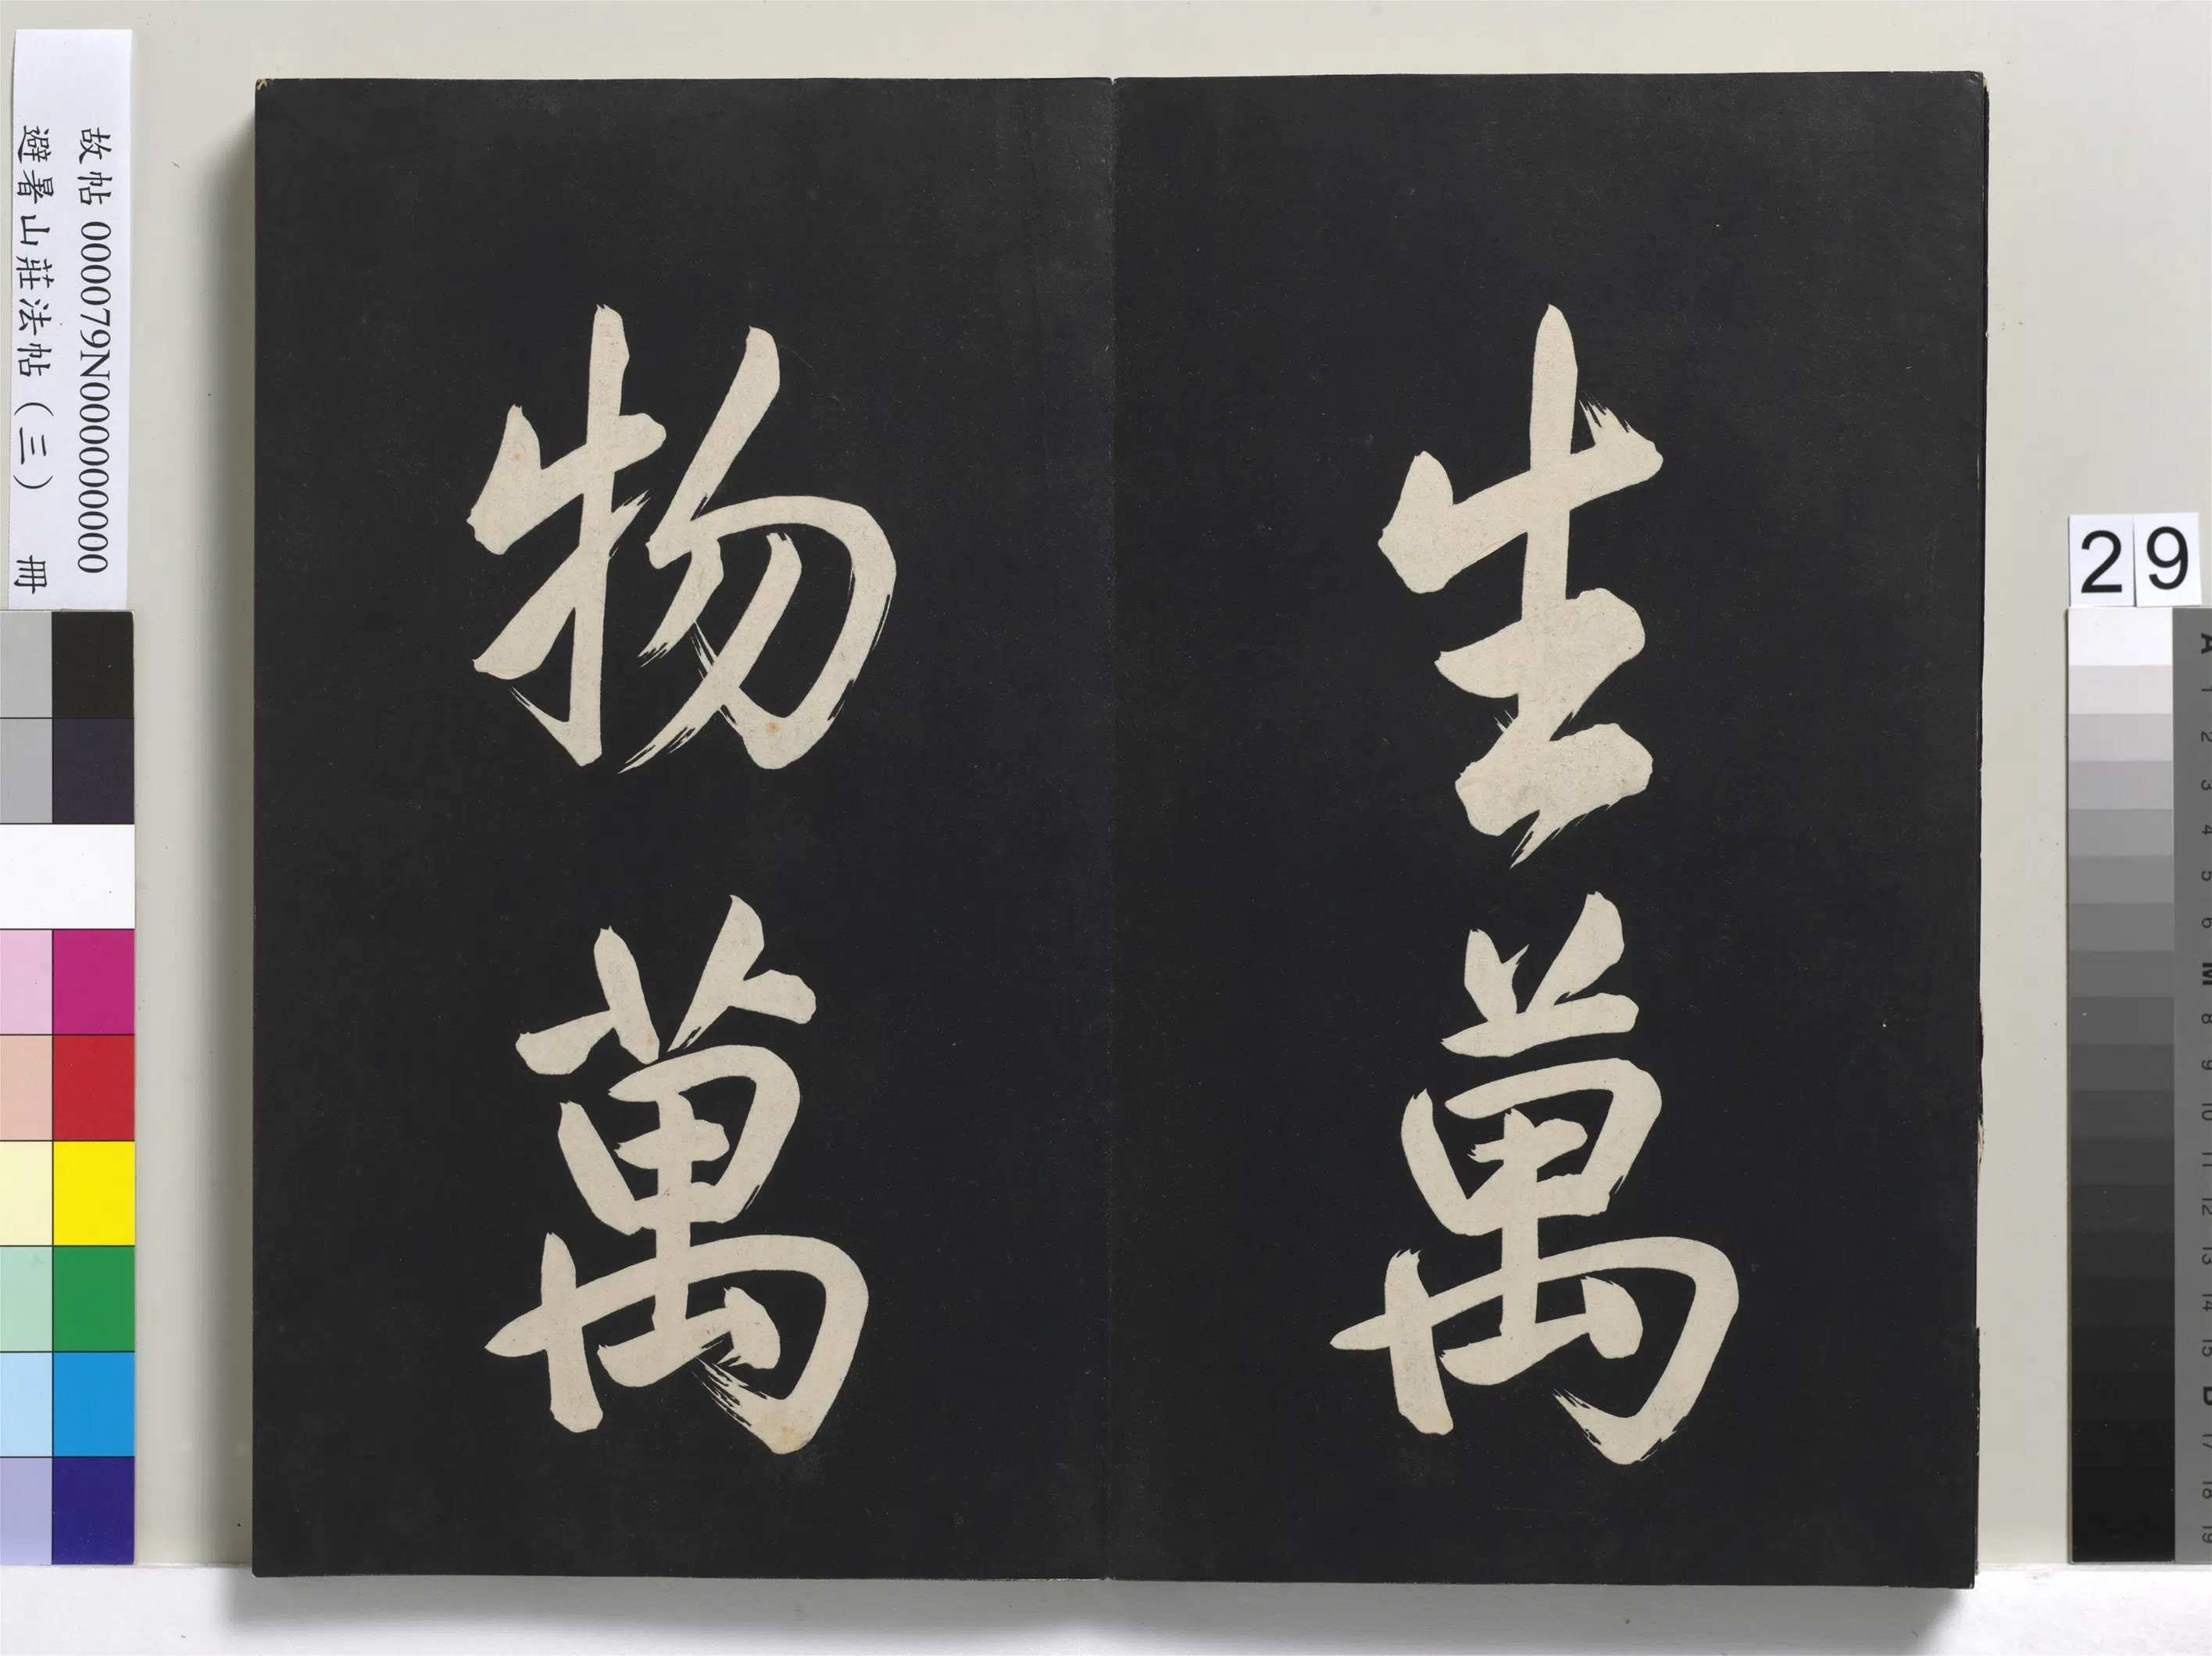 生萬
物萬
故帖 000079N000000000
避暑山莊法帖（三） 冊
29
A 1 2 3 4 5 6 M 8 9 10 11 12 13 14 15 B 17 18 19